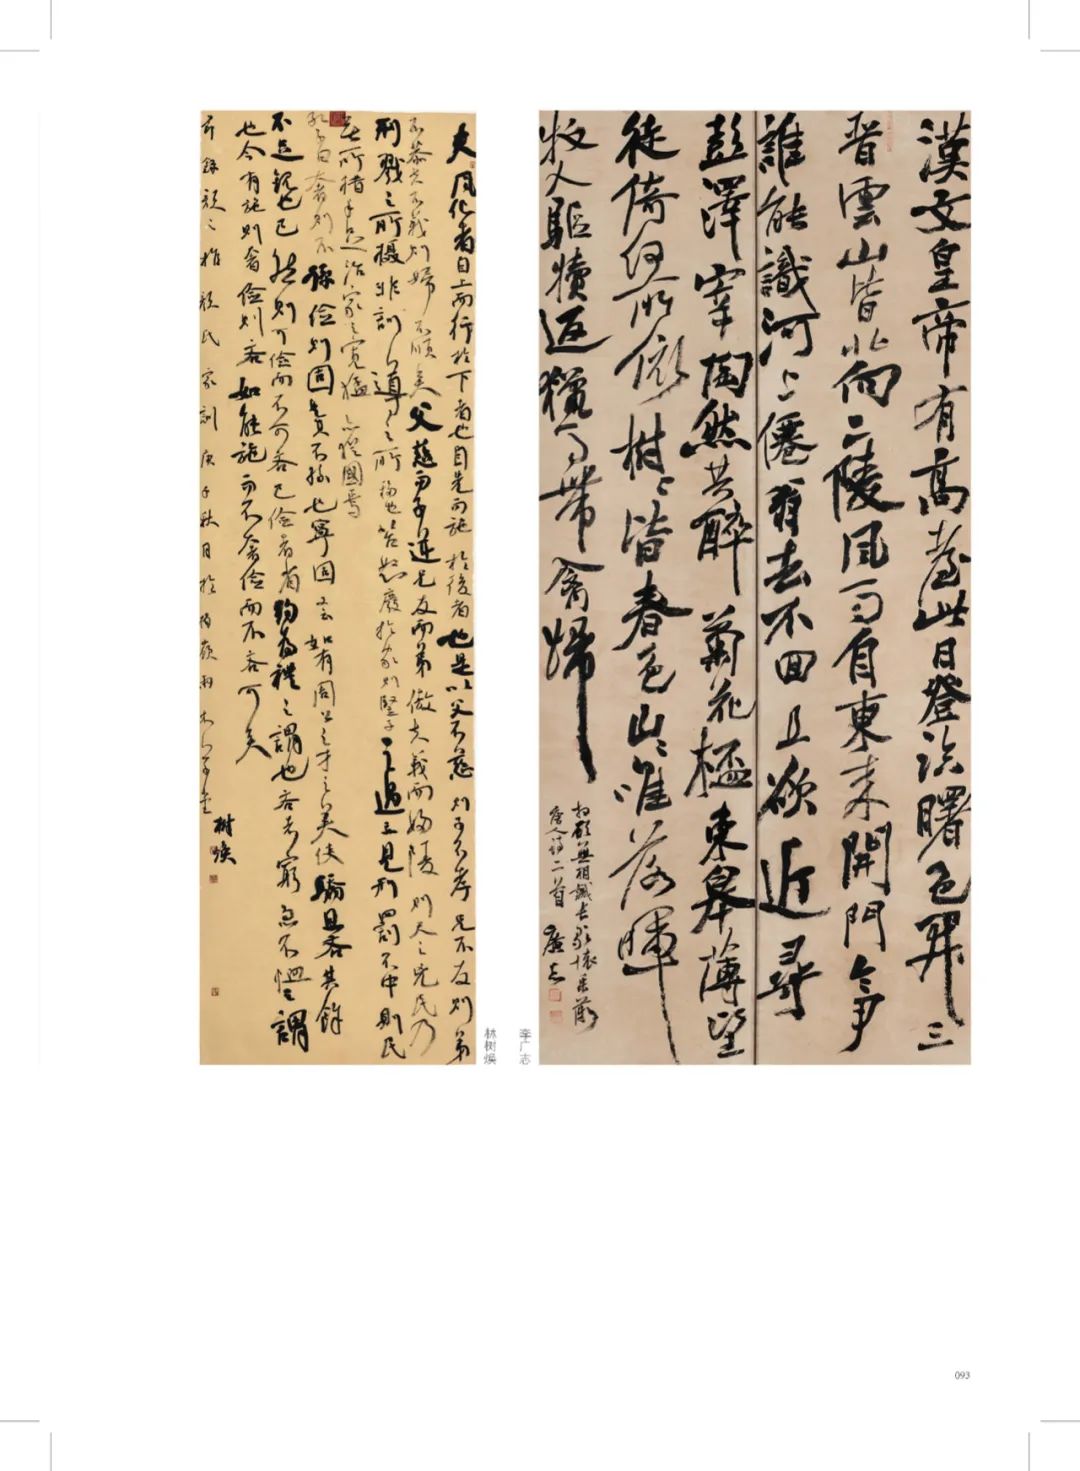 漢文皇帝有高臺此日登臨曙色開三
晉雲山皆北向二陵風雨自東来開門令尹
誰能識河上僊翁去不回且欲近尋
彭澤宰陶然共醉菊花桮東皋薄望
徒倚何所依樹〻皆春色山〻唯落暉
牧人驅犢返獵馬帶禽歸
相顧無相識長歌懷采薇
唐人詩二首 廣志
李广志
夫風化者自上而行於下者也自先而施於後者也是以父不慈則子不孝兄不友則弟
不恭夫不義則婦不順矣父慈而子逆兄友而弟傲夫義而婦陵則天之兇民乃
刑戮之所攝非訓導之所移也笞怒廢於家則豎子之過立見刑罰不中則民
無所措手足治家之寬猛亦猶國焉
孔子曰奢則不孫儉則固與其不孫也寧固又云如有周公之才之美使驕且吝其餘
不足觀也已然則可儉而不可吝已儉者省約為禮之謂也吝者窮急不恤之謂
也今有施則奢儉則吝如能施而不奢儉而不吝可矣
右錄顏之推顏氏家訓庚子秋月於
樹煥
林树焕
093